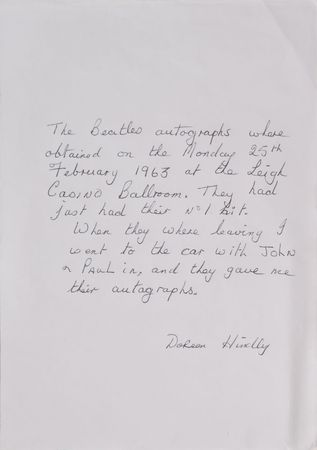 The Beatles autographs where
obtained on the Monday 25th
February 1963 at the Leigh
Casino Ballroom. They had
just had their No 1 hit.
When they where leaving I
went to the car with John
n Paul in, and they gave me
their autographs.
Doreen